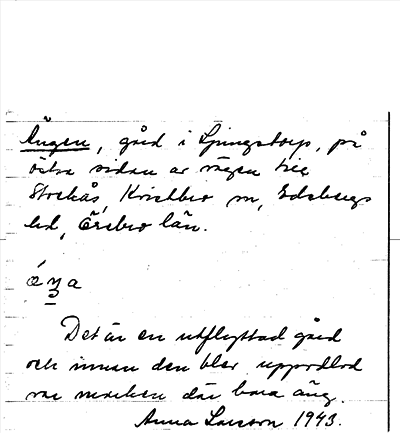 Ängen, gård i Ljungstorp, på
östra sidan av vägen till
Stockås, Kvistbro sn, Edsbergs
hd, Örebro län.
Det är en utflyttad gård
och innan den blev uppodlad
var marken där bara äng.
Anna Larsson 1943.